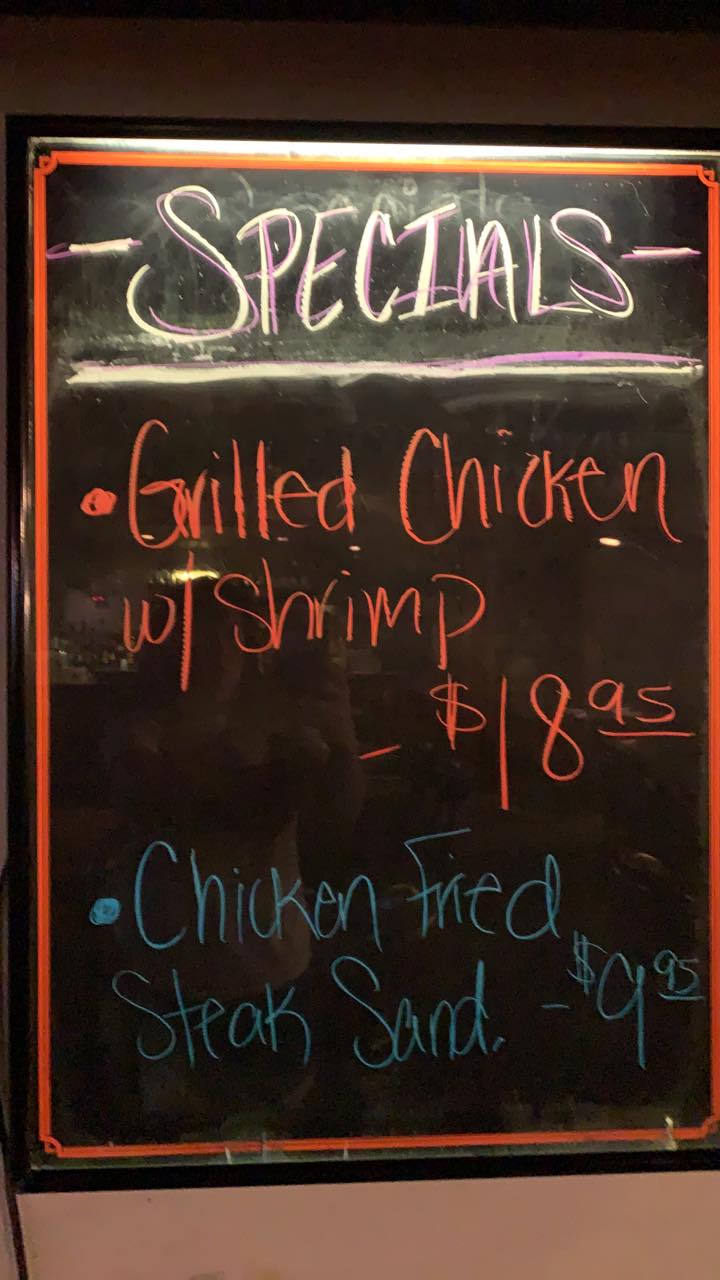 - SPECIALS -
• Grilled Chicken
w/ Shrimp
- $18 95
• Chicken Fried
Steak Sand. - $9 95